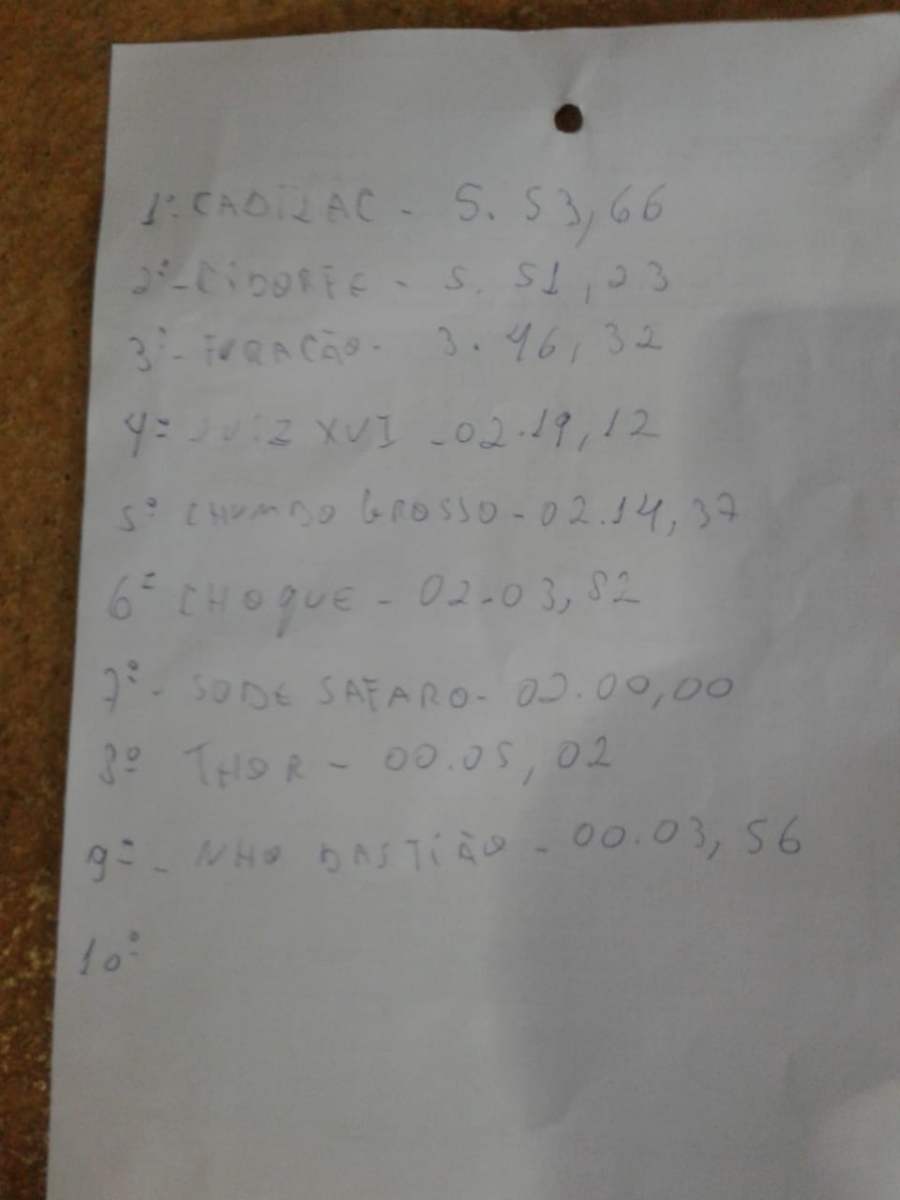 1º. CADILAC - 5. 53,66
2º - - 5. 51,23
3º - FURACÃO - 3. 46,32
4º LUIZ XVI - 02.19,12
5º CHUMBO GROSSO - 02.14,37
6º CHOQUE - 02.03,82
7º - SODE SAFARO - 02.00,00
8º THOR - 00.05,02
9º - NHO BASTIÃO - 00.03,56
10º